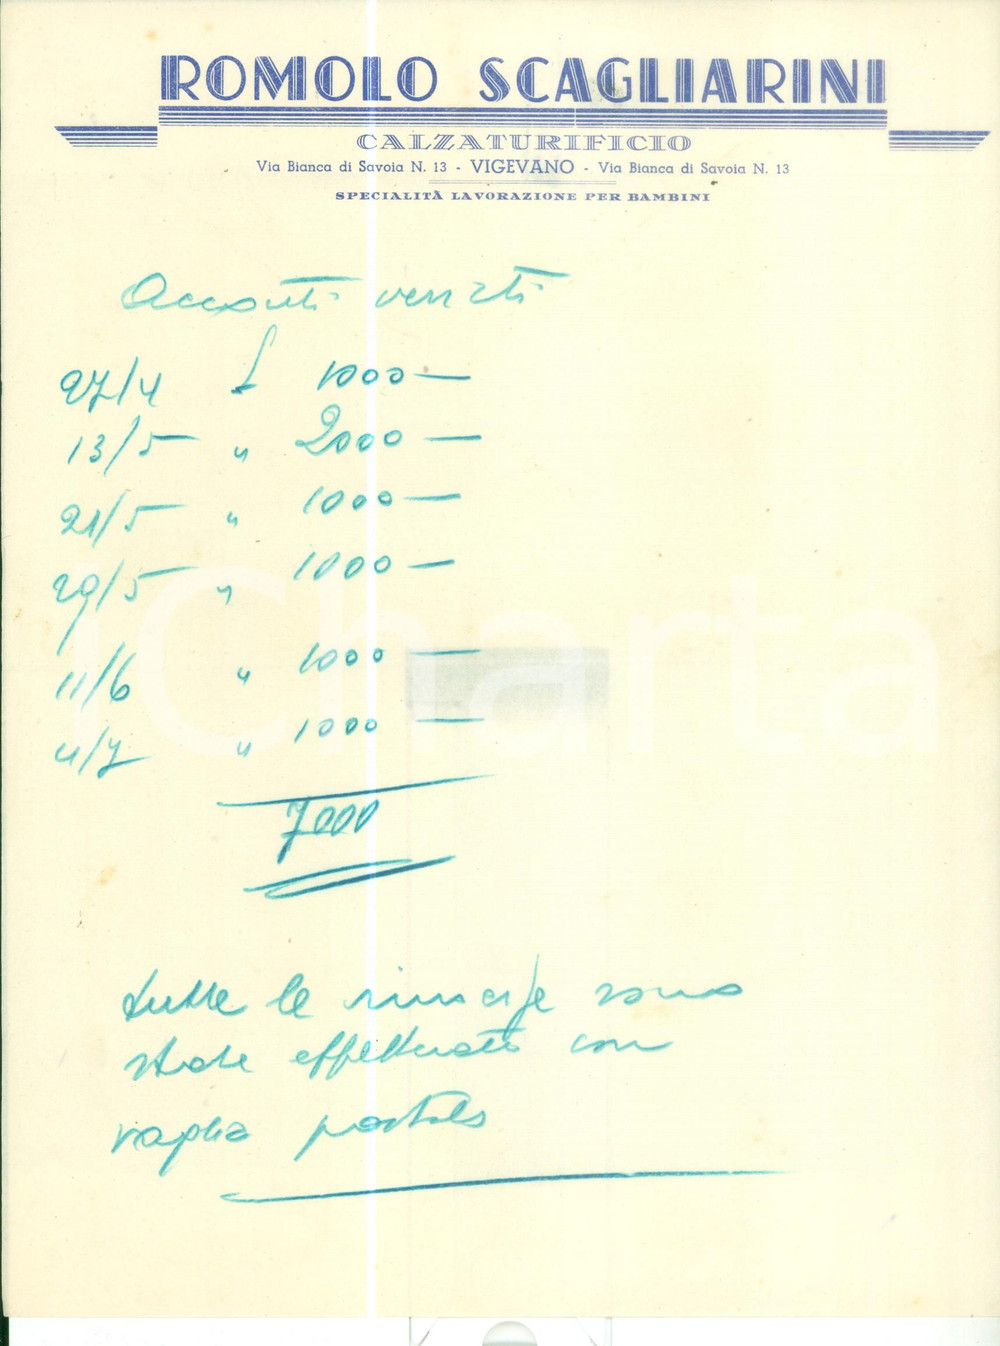 ROMOLO SCAGLIARINI
CALZATURIFICIO
Via Bianca di Savoia N. 13 - VIGEVANO - Via Bianca di Savoia N. 13
SPECIALITÀ LAVORAZIONE PER BAMBINI
Acconti versati
27/4 £ 1000 —
13/5 " 2000 —
21/5 " 1000 —
29/5 " 1000 —
11/6 " 1000 —
4/7 " 1000 —
7000
tutte le rimesse sono
state effettuate con
vaglia postale
iCharta